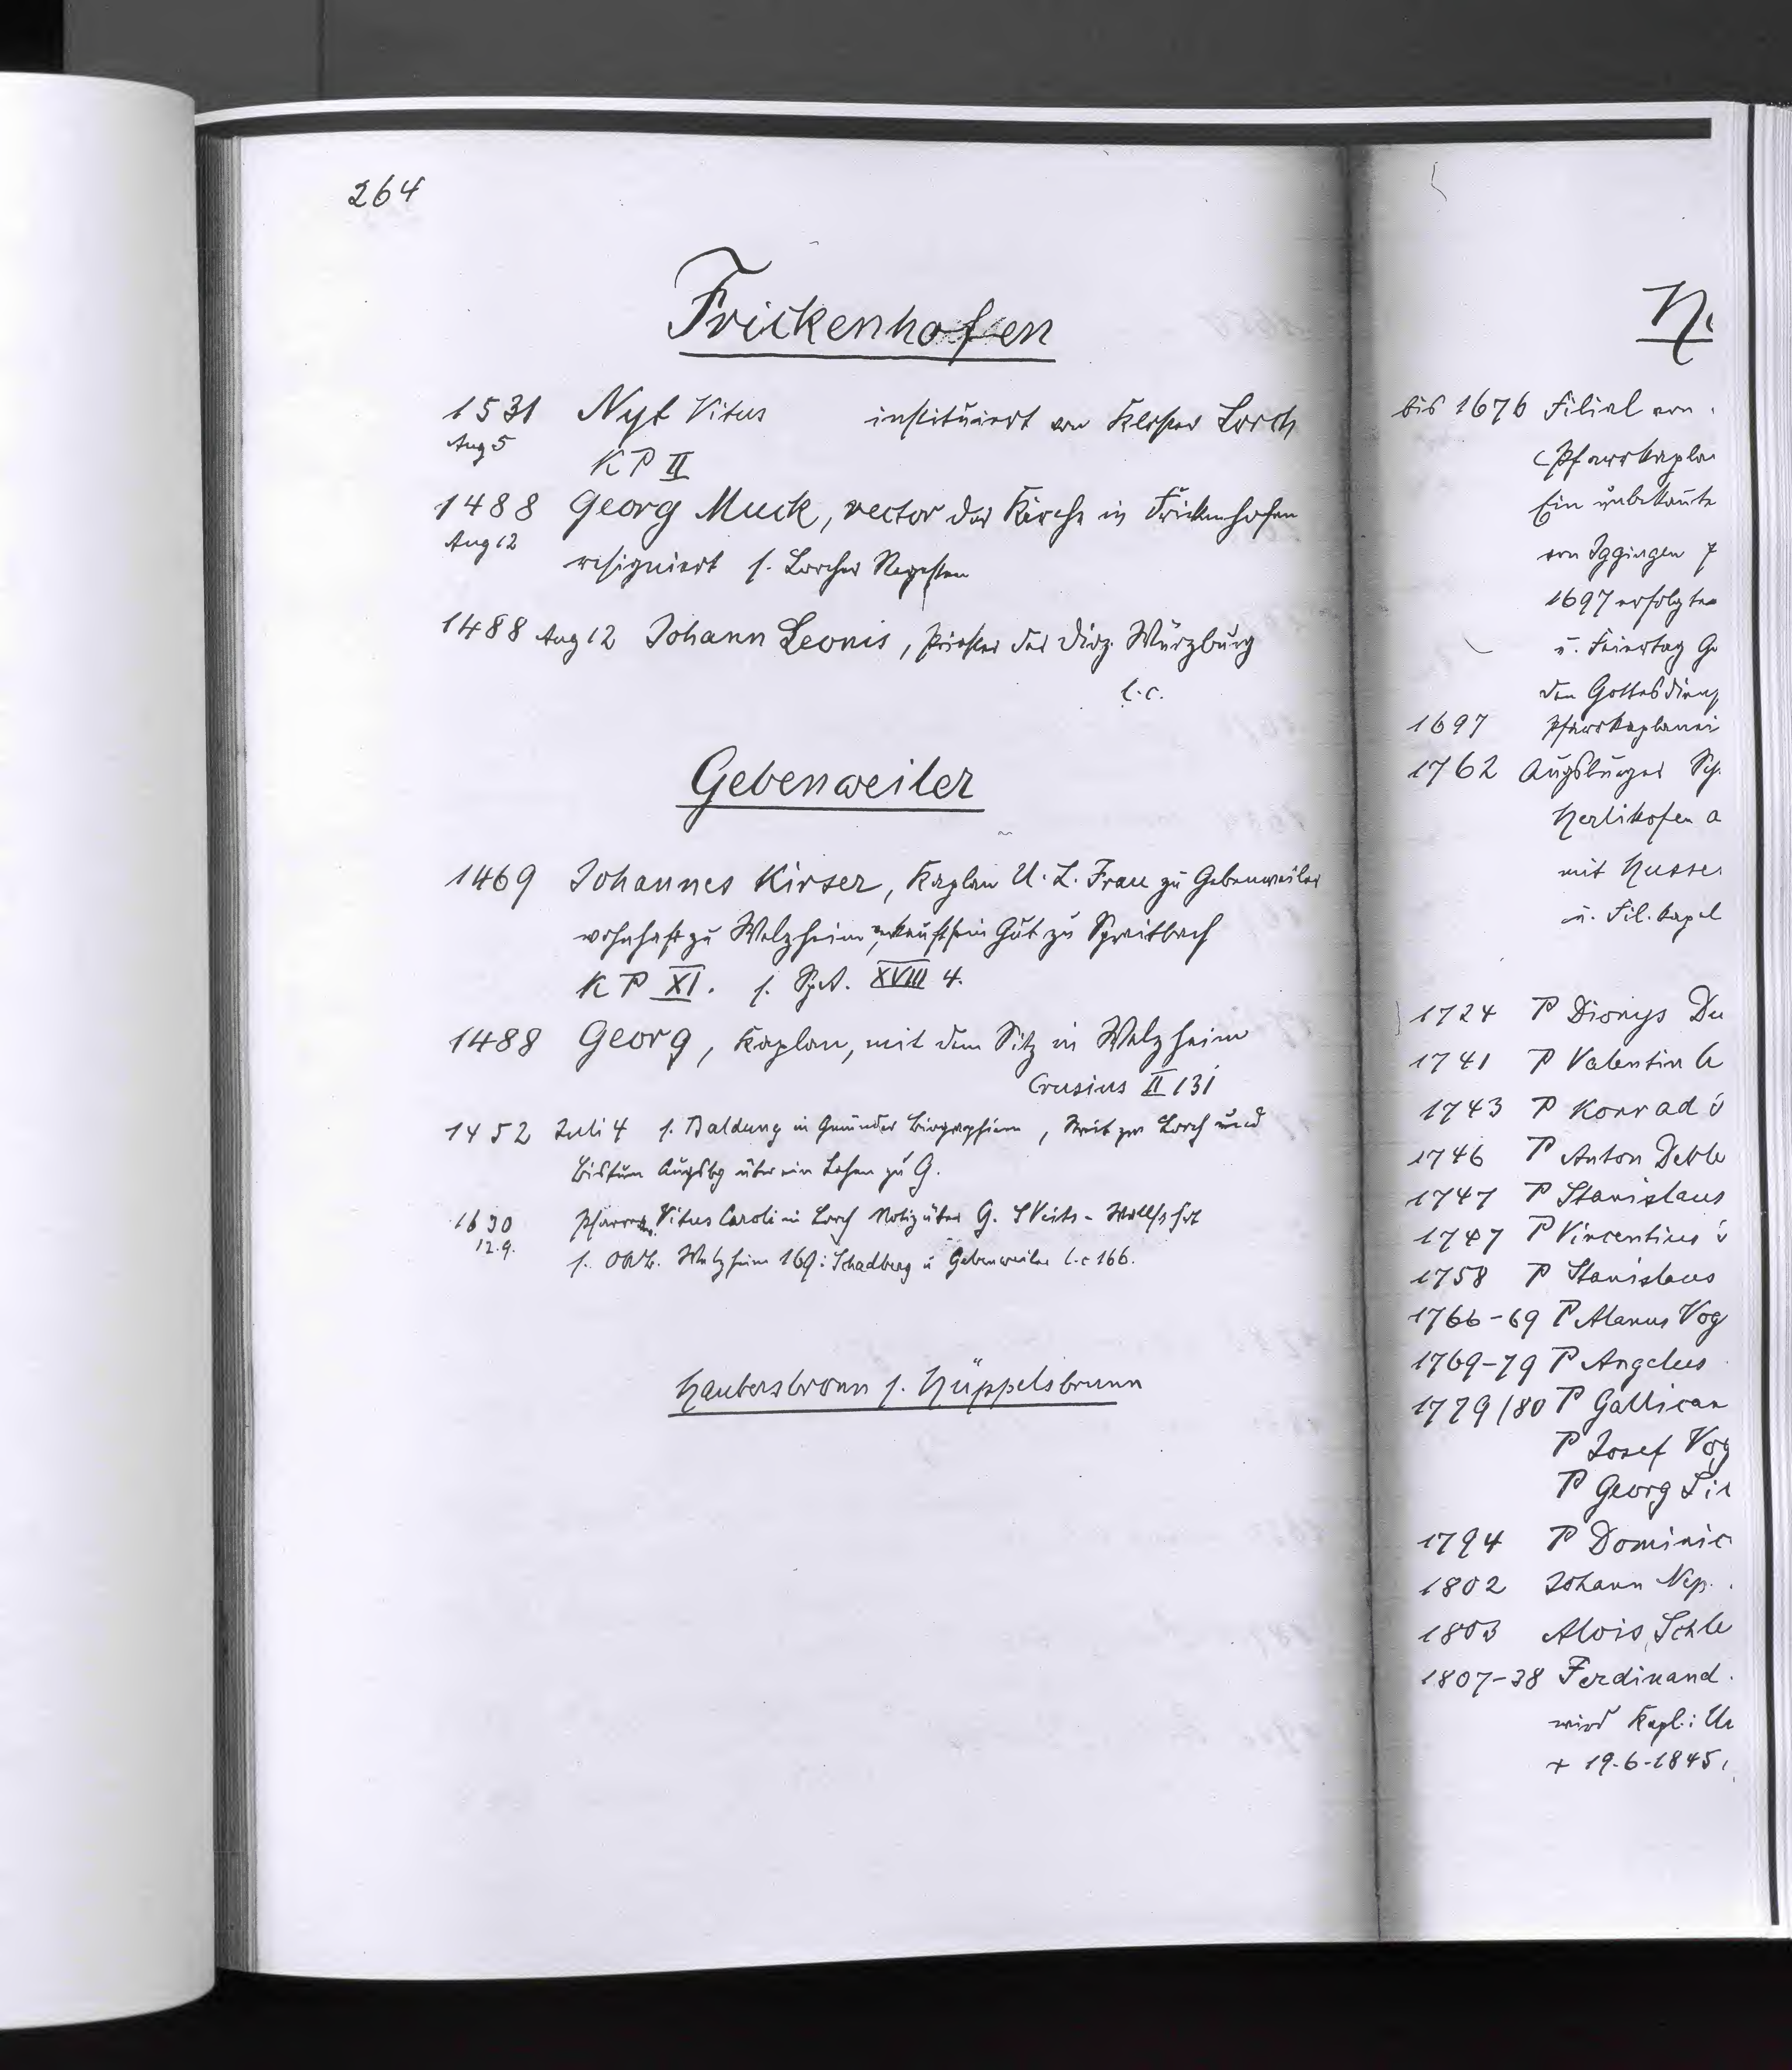 264
Frickenhofen
1531 Nyt Vitus instituiert von Kloster Lorch
Aug 5
KP II
1488 Georg Muck, rector der Kirche in Frickenhofen
Aug 12
resigniert s. Lorcher Regesten
1488 Aug 12 Johann Leonis, Priester der Diöz. Würzburg
l.c.
Gebenweiler
1469 Johannes Kirser, Kaplan U. L. Frau zu Gebenweiler
wohnhaft zu Welzheim, verkauft sein Gut zu Spraitbach
KP XI. s. SpA. XVIII 4.
1488 Georg, Kaplan, mit dem Sitz in Welzheim
Crusius II 131
1452 Juli 4 s. Baldung in Gmünder Biographien, Streit zw Lorch und
Bistum Augsbg über ein Lehen zu G.
1630 Pfarrer Vitus Caroli in Lorch Notiz über G. S Veits-Wallfahrt
12.9.
s. OAB. Welzheim 169: Schadberg u Gebenweiler l.c 166.
Haubersbronn s. Hüppelsbrunn
bis 1676 Filial von
(Pfarrkapla
Ein unbekannte
von Iggingen
1697 erfolgte
u. Feiertag Go
den Gottesdienst
1697 Pfarrkaplanei
1762 Augsburger Sch.
Herlikofen a
mit Husse
u. Fil. Kapel
1724 P Dionys Du
1741 P Valentin
1743 P Konrad
1746 P Anton Deble
1747 P Stanislaus
1747 P Vincentius
1758 P Stanislaus
1766-69 P Alanus Vog
1769-79 P Angelus
1779/80 P Gallican
P Josef Vog
P Georg Sin
1794 P Dominic
1802 Johann Nep.
1803 Alois Schle
1807-38 Ferdinand
wird Kapl. i Un
+ 19.6.1845